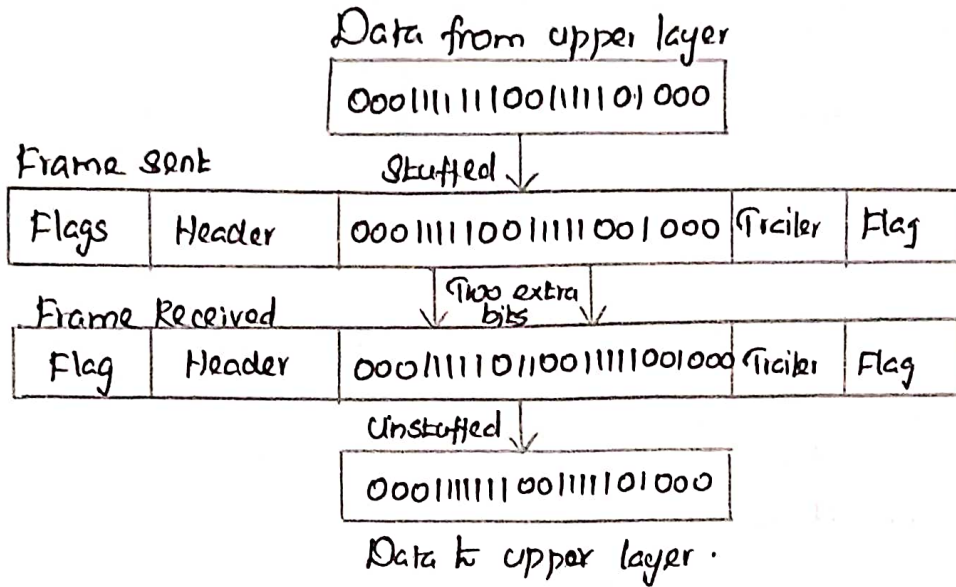 Data from upper layer
0001111111001111101000
Frame sent
Stuffed
Flags Header 000111110011111001000 Trailer Flag
Two extra
bits
Frame Received
Flag Header 000111110110011111001000 Trailer Flag
Unstuffed
0001111111001111101000
Data to upper layer.